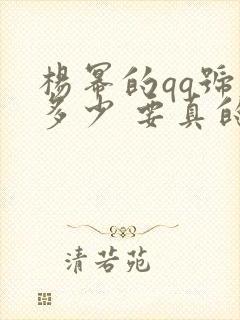 楊冪的qq號
多少 要真的
清若苑